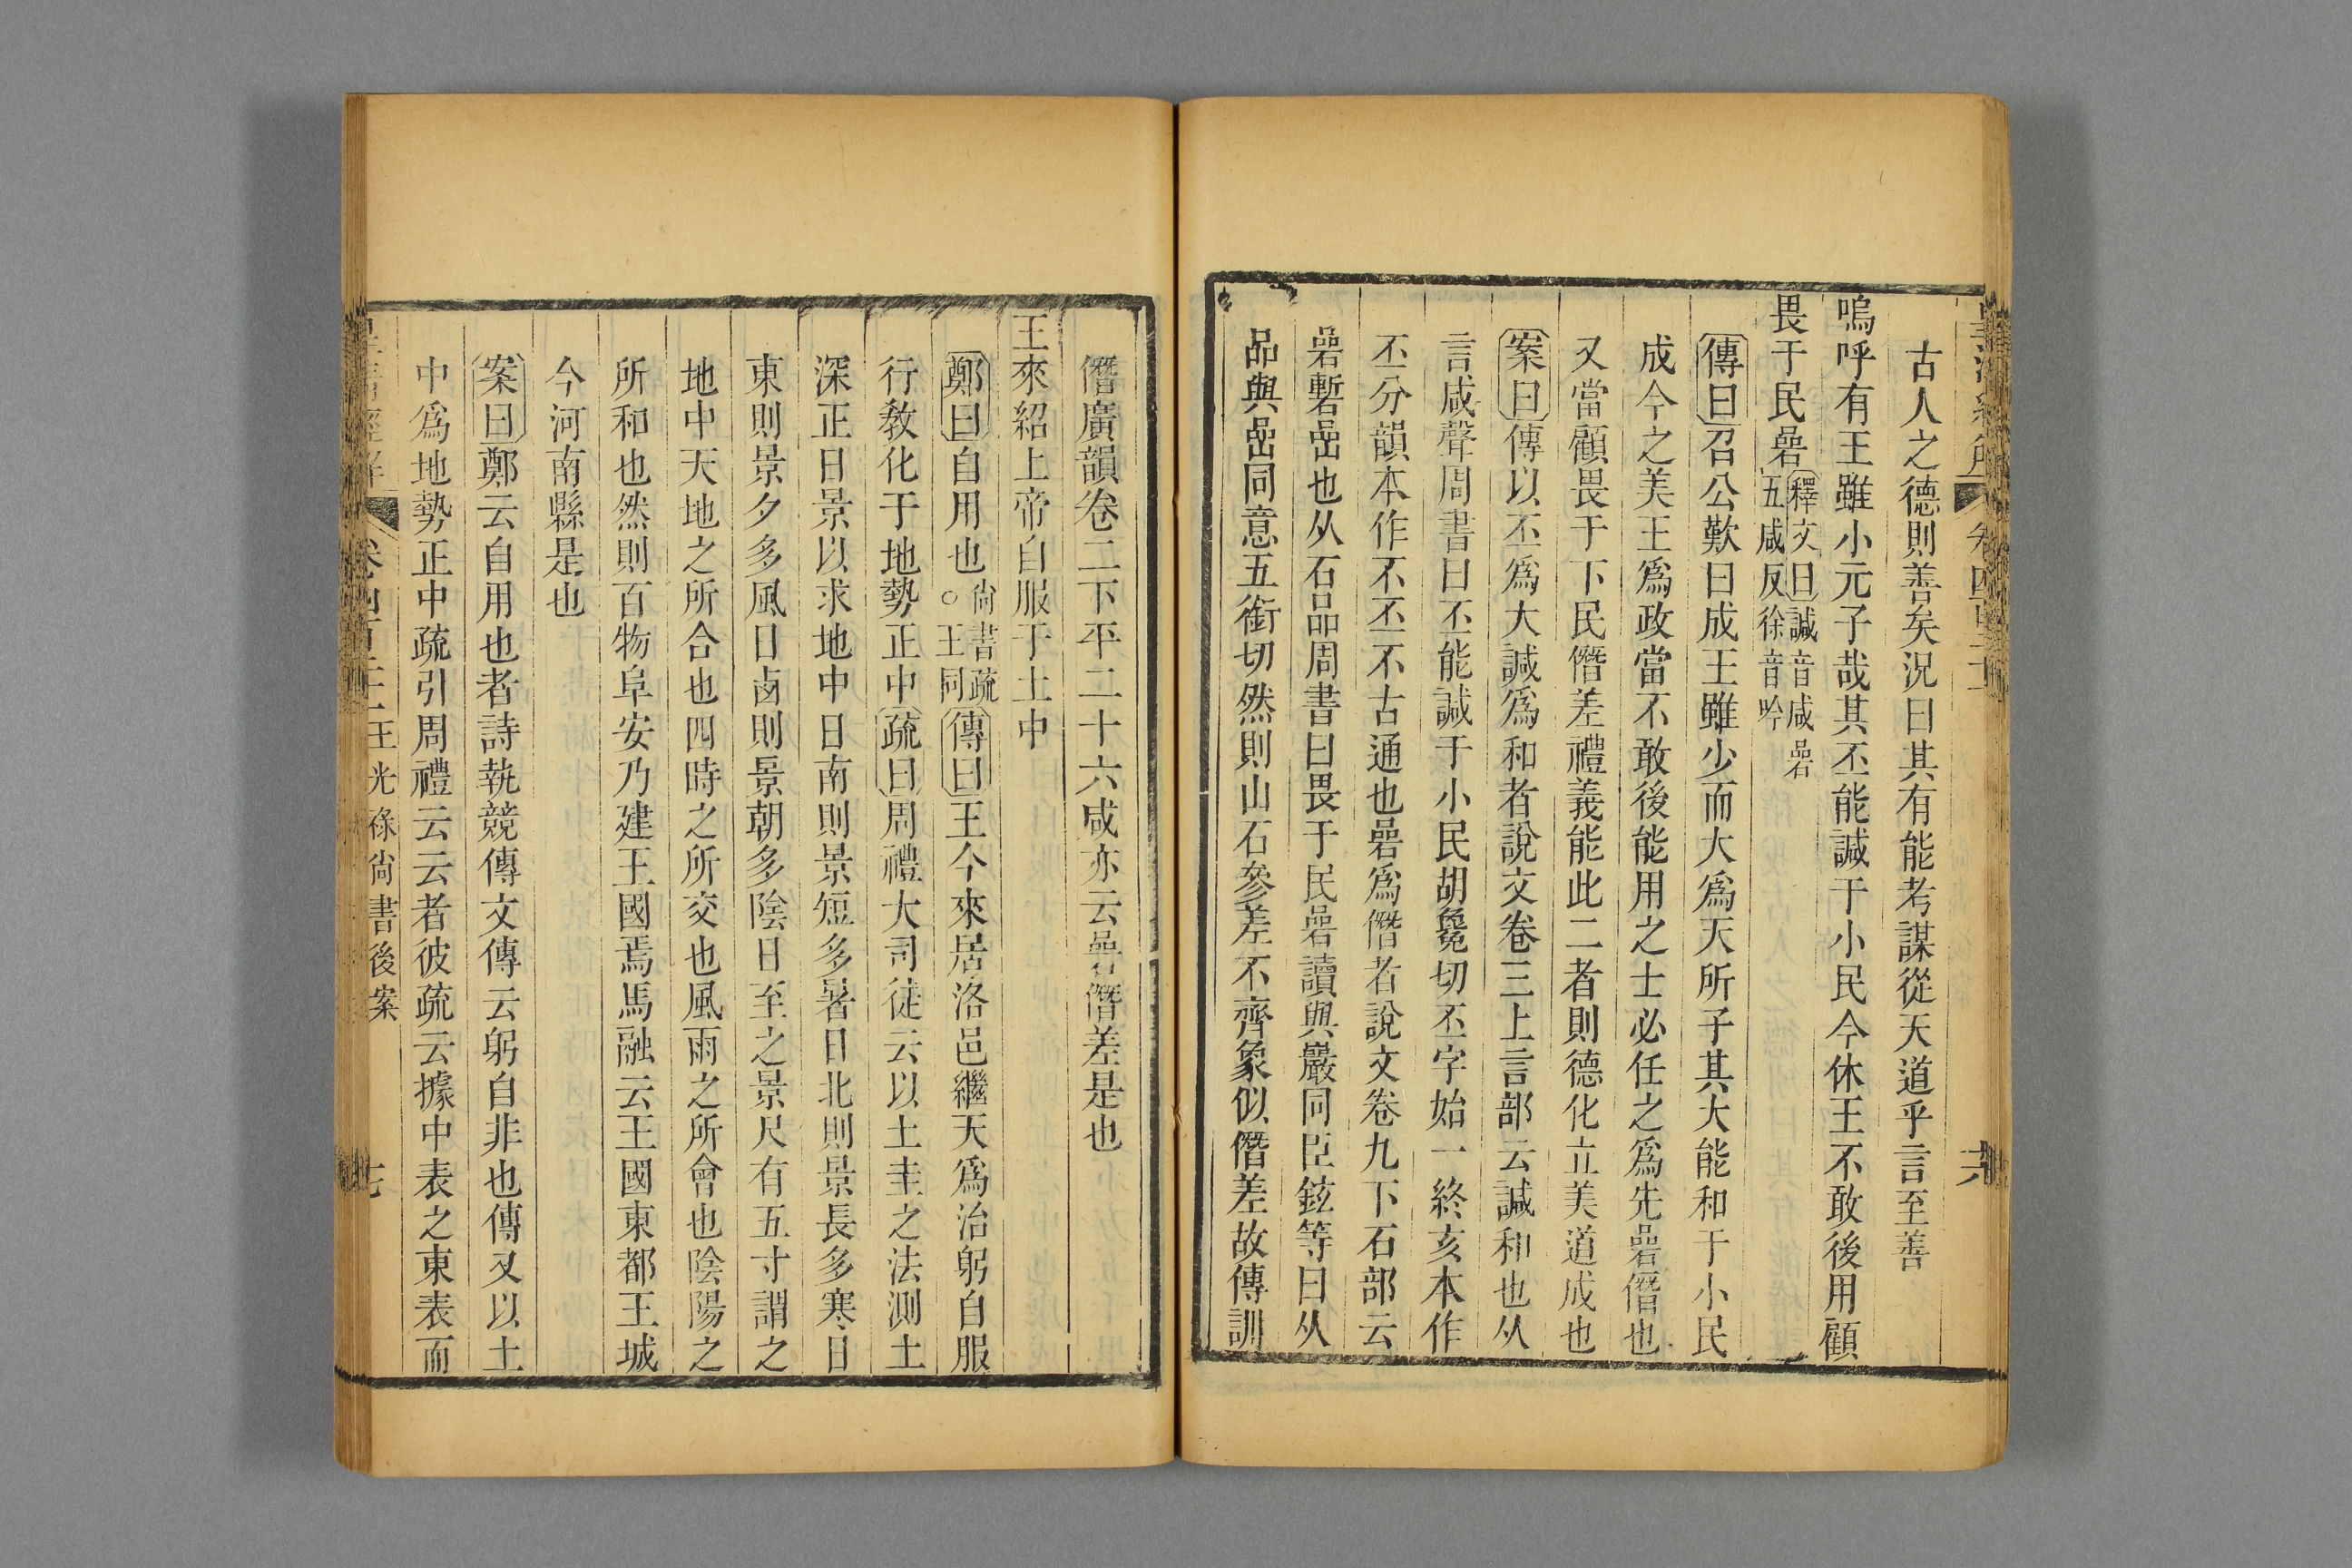 古人之德則善矣況曰其有能考謀從天道乎言至善
嗚呼有王雖小元子哉其丕能諴于小民今休王不敢後用顧
畏于民碞釋文曰諴音咸碞五咸反徐音吟
傳曰召公歎曰成王雖少而大爲天所子其大能和于小民
成今之美王爲政當不敢後能用之士必任之爲先碞僭也
又當顧畏于下民僭差禮義能此二者則德化立美道成也
案曰傳以丕爲大諴爲和者說文卷三上言部云諴和也从
言咸聲周書曰丕能諴于小民胡毚切丕字始一終亥本作
丕分韻本作不丕不古通也碞爲僭者說文卷九下石部云
碞嶃嵒也从石品周書曰畏于民碞讀與巖同臣鉉等曰从
品與嵒同意五銜切然則山石參差不齊象似僭差故傳訓
僭廣韻卷二下平二十六咸亦云碞僭差是也
王來紹上帝自服于土中
鄭曰自用也尙書疏○王同傳曰王今來居洛邑繼天爲治躬自服
行敎化于地勢正中疏曰周禮大司徒云以土圭之法測土
深正日景以求地中日南則景短多暑日北則景長多寒日
東則景夕多風日㢴則景朝多陰日至之景尺有五寸謂之
地中天地之所合也四時之所交也風雨之所會也陰陽之
所和也然則百物阜安乃建王國焉馬融云王國東都王城
今河南縣是也
案曰鄭云自用也者詩執競傳文傳云躬自非也傳又以土
中爲地勢正中疏引周禮云云者彼疏云據中表之東表而
王光祿尙書後案